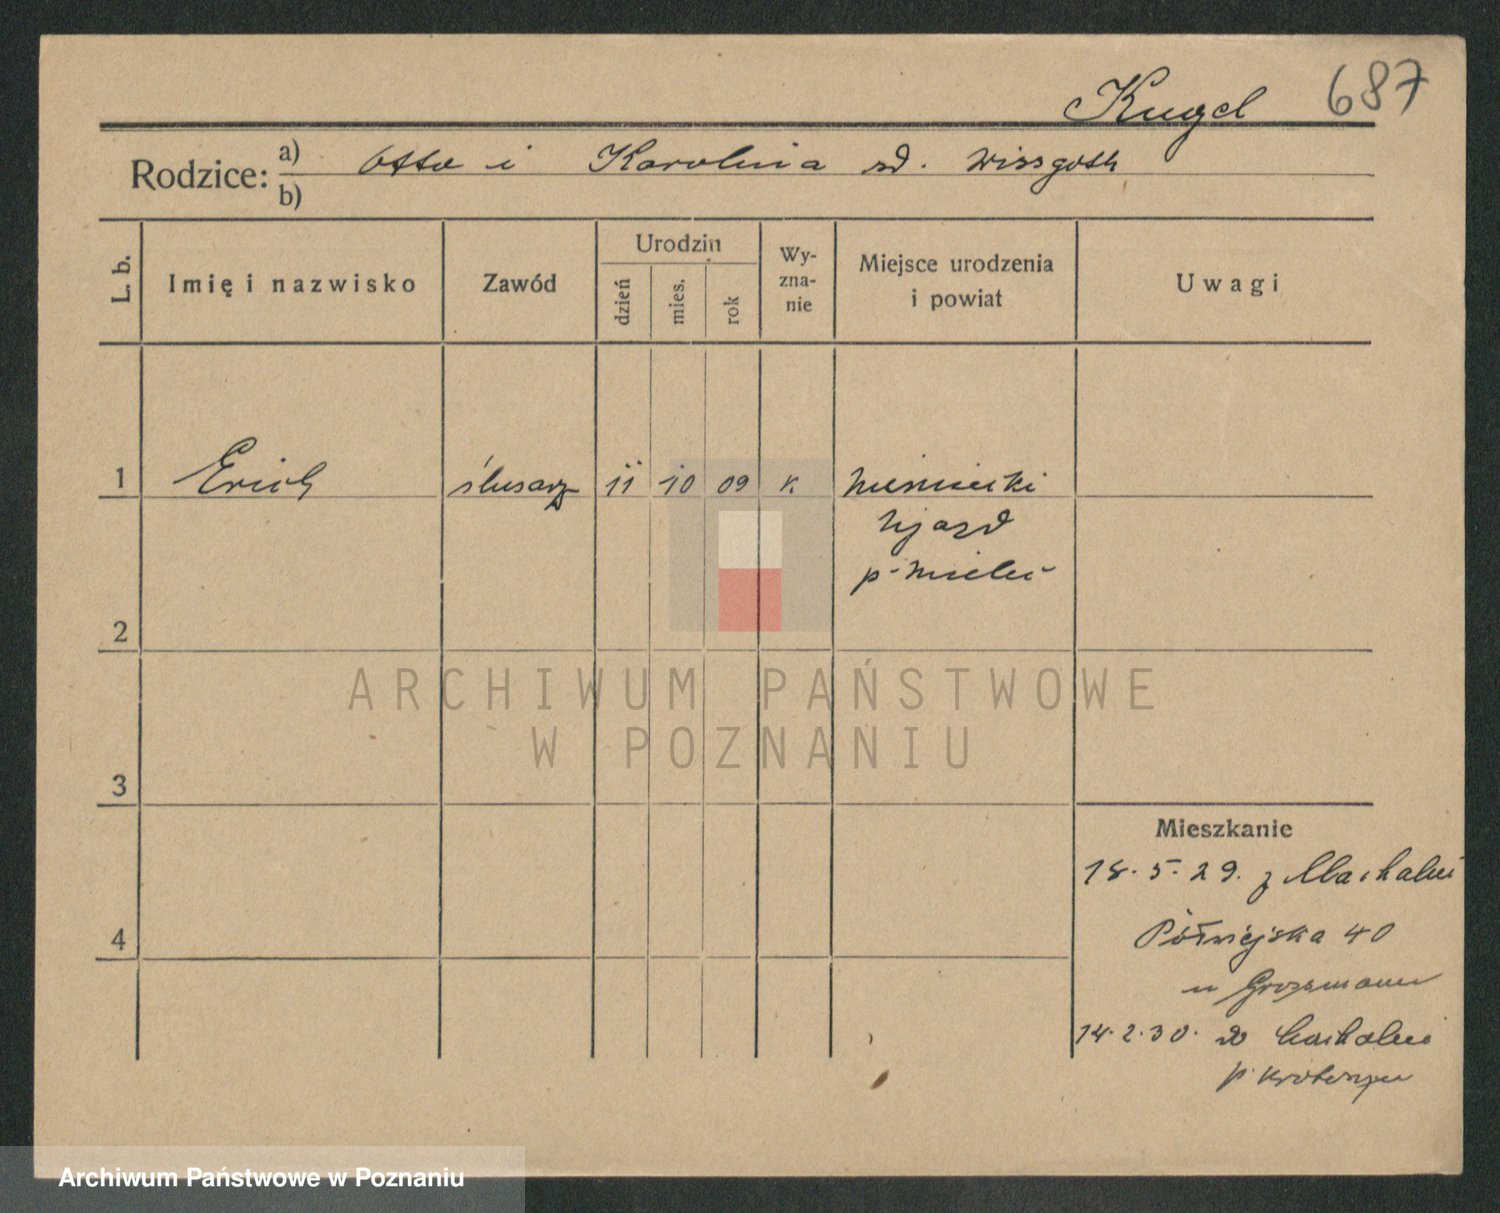 Kugel 687
Rodzice: a) Otto i Karolina zd. Wissgoth
b)
L. b.
Imię i nazwisko
Zawód
Urodzin
dzień
mies.
rok
Wy-
zna-
nie
Miejsce urodzenia
i powiat
Uwagi
1 Erich ślusarz 11 10 09 k
Ujazd
p.
2
ARCHIWUM PAŃSTWOWE
W POZNANIU
3
Mieszkanie
18. 5. 29. z
4
Półwiejska 40
u Grossmann
14. 2. 30. do
p.
Archiwum Państwowe w Poznaniu